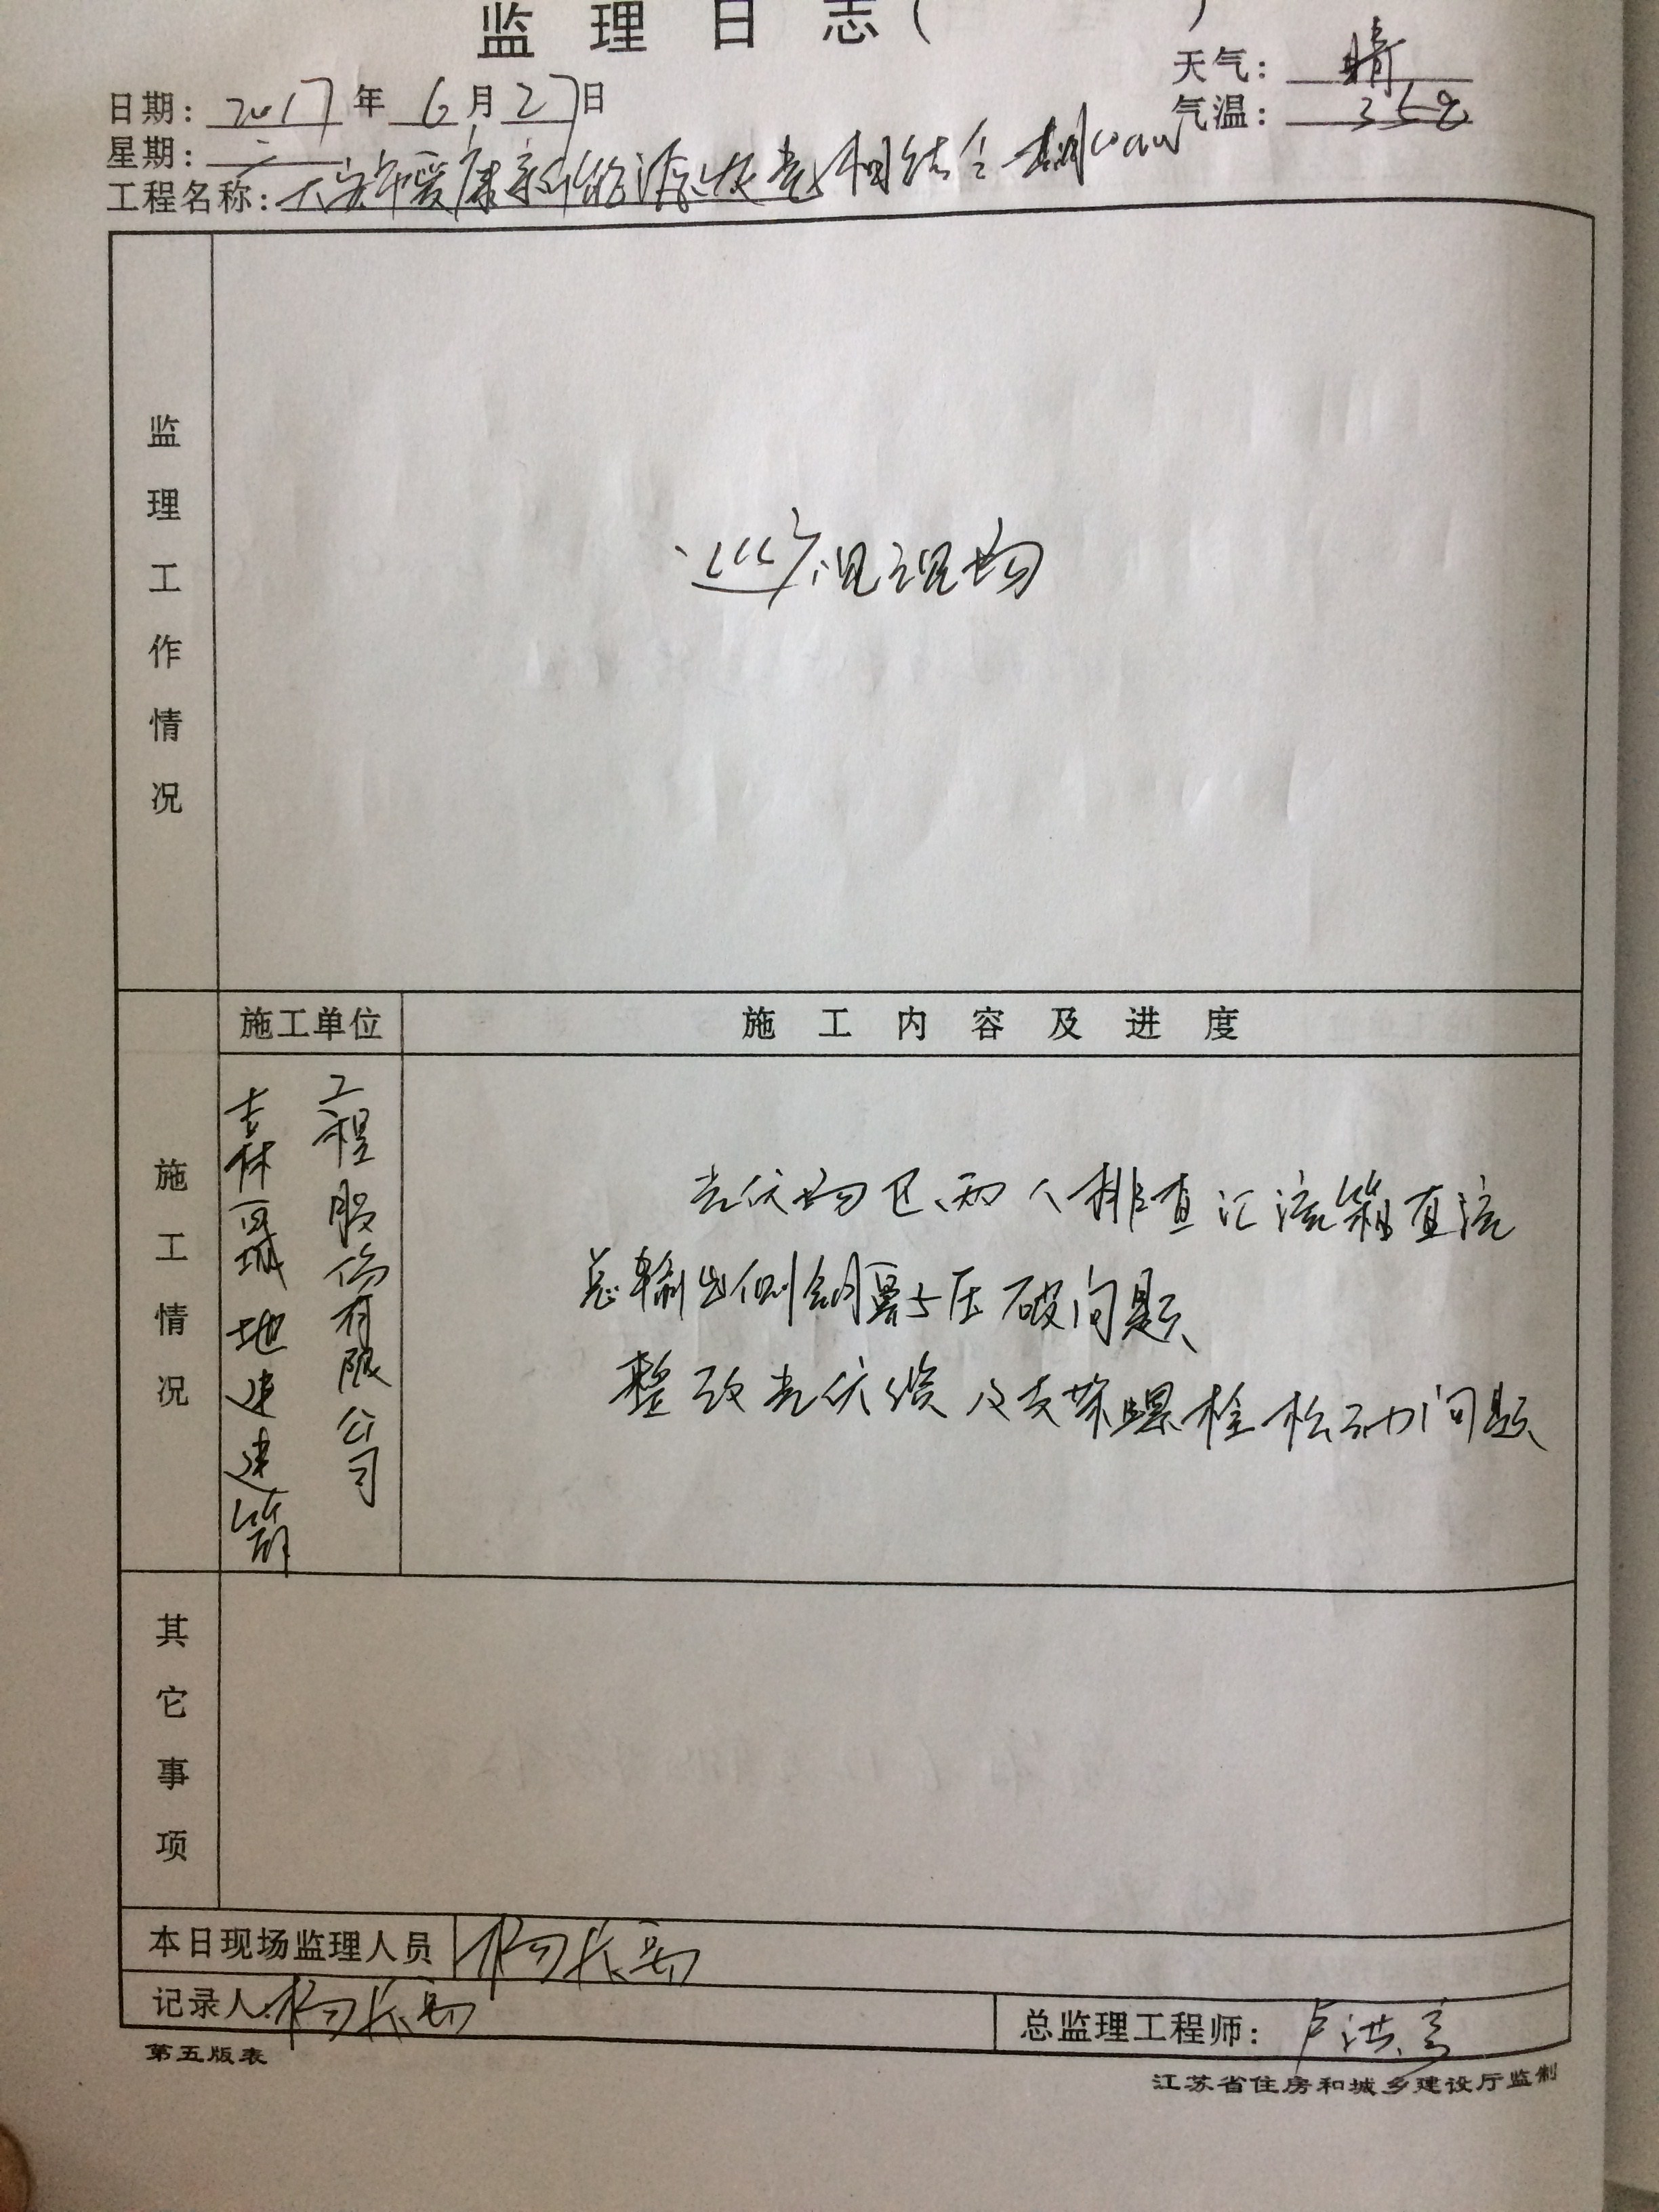 监理日志（ ）
天气：晴
日期：2017年6月27日
气温：35℃
星期：二
工程名称：大安市爱康新能源牧光相结合一期
监理工作情况
巡视现场
施工单位
施工内容及进度
施工情况
吉林省地建建筑
工程股份有限公司
光伏场区、两人排查汇流箱直流
总输出侧铜鼻子压破问题
整改光伏 及支架螺栓松动问题
其它事项
本日现场监理人员 杨长
记录人：杨长
总监理工程师：卢洪
第五版表
江苏省住房和城乡建设厅监制